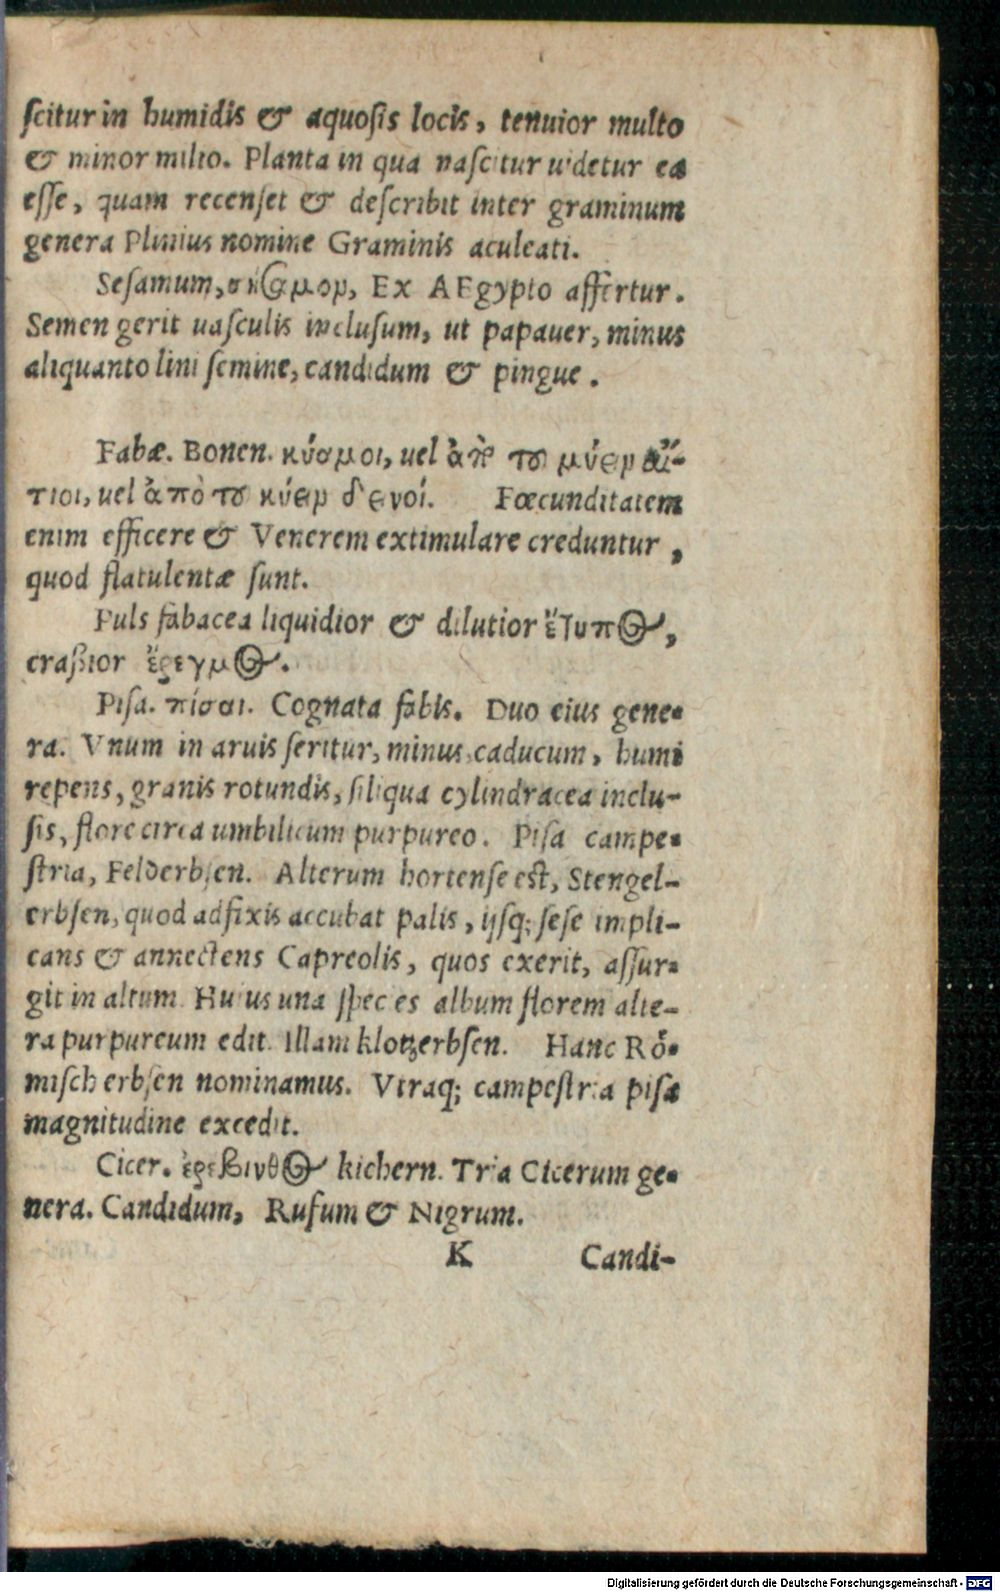 ſcitur in humidis & aquoſis locis, tenuior multo
& minor milio. Planta in qua naſcitur uidetur ea
eſſe, quam recenſet & deſcribit inter graminum
genera Plinius nomine Graminis aculeati.
Seſamum, σήσαμον, Ex AEgypto affertur.
Semen gerit uaſculis incluſum, ut papauer, minus
aliquanto lini ſemine, candidum & pingue.
Fabæ. Bonen. κύαμοι, uel ἀπὸ τοῦ κύειν
uel ἀπὸ τοῦ κύειν Fœcunditatem
enim efficere & Venerem extimulare creduntur,
quod flatulentæ ſunt.
Puls fabacea liquidior & dilutior ἔτνος,
craßior ἔρεγμος.
Piſa. πίσοι. Cognata fabis. Duo eius gene-
ra. Vnum in aruis ſeritur, minus caducum, humi
repens, granis rotundis, ſiliqua cylindracea inclu-
ſis, flore circa umbilicum purpureo. Piſa campe-
ſtria, Felderbſen. Alterum hortenſe eſt, Stengel-
erbſen, quod adfixis accubat palis, ijſq; ſeſe impli-
cans & annectens Capreolis, quos exerit, aſſur-
git in altum. Huius una ſpecies album florem alte-
ra purpureum edit. Illam klotzerbſen. Hanc Rö-
miſch erbſen nominamus. Vtraq; campeſtria piſa
magnitudine excedit.
Cicer. ἐρέβινθος kichern. Tria Cicerum ge-
nera. Candidum, Rufum & Nigrum.
K Candi-
Digitalisierung gefördert durch die Deutsche Forschungsgemeinschaft - DFG